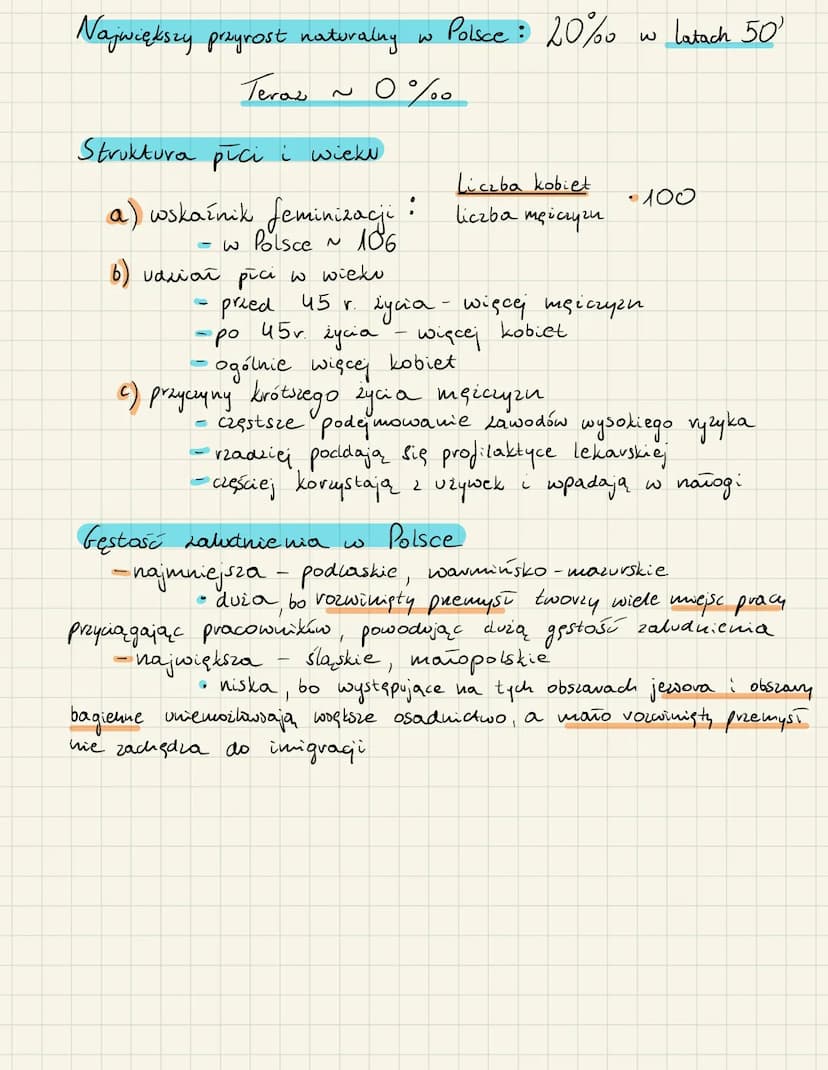 Największy przyrost naturalny w Polsce: 20‰ w latach 50'
Teraz ~ 0‰
Struktura płci i wieku
a) wskaźnik feminizacji: Liczba kobiet / liczba mężczyzn · 100
- w Polsce ~ 106
b) udział płci w wieku
- przed 45 r. życia - więcej mężczyzn
- po 45r. życia - więcej kobiet
- ogólnie więcej kobiet
c) przyczyny krótszego życia mężczyzn
- częstsze podejmowanie zawodów wysokiego ryzyka
- rzadziej poddają się profilaktyce lekarskiej
- częściej korzystają z używek i wpadają w nałogi
Gęstość zaludnienia w Polsce
- najmniejsza - podlaskie, warmińsko-mazurskie
• duża, bo rozwinięty przemysł tworzy wiele miejsc pracy
przyciągając pracowników, powodując dużą gęstość zaludnienia
- największa - śląskie, małopolskie
• niska, bo występujące na tych obszarach jeziora i obszary
bagienne uniemożliwiają większe osadnictwo, a mało rozwinięty przemysł
nie zachędza do imigracji